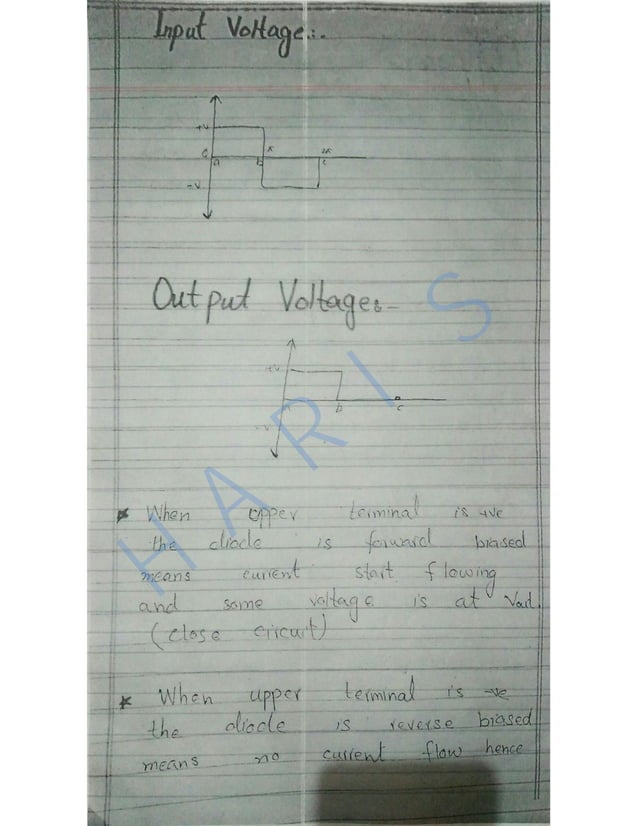 Input Voltage:-
+V
π
2π
0
a
b
c
-V
Output Voltage:-
+V
b
c
-V
HARIS
* When upper terminal is +ve
the diode is forward biased
means current start flowing
and same voltage is at Vout.
(close circuit)
* When upper terminal is -ve
the diode is reverse biased
means no current flow hence